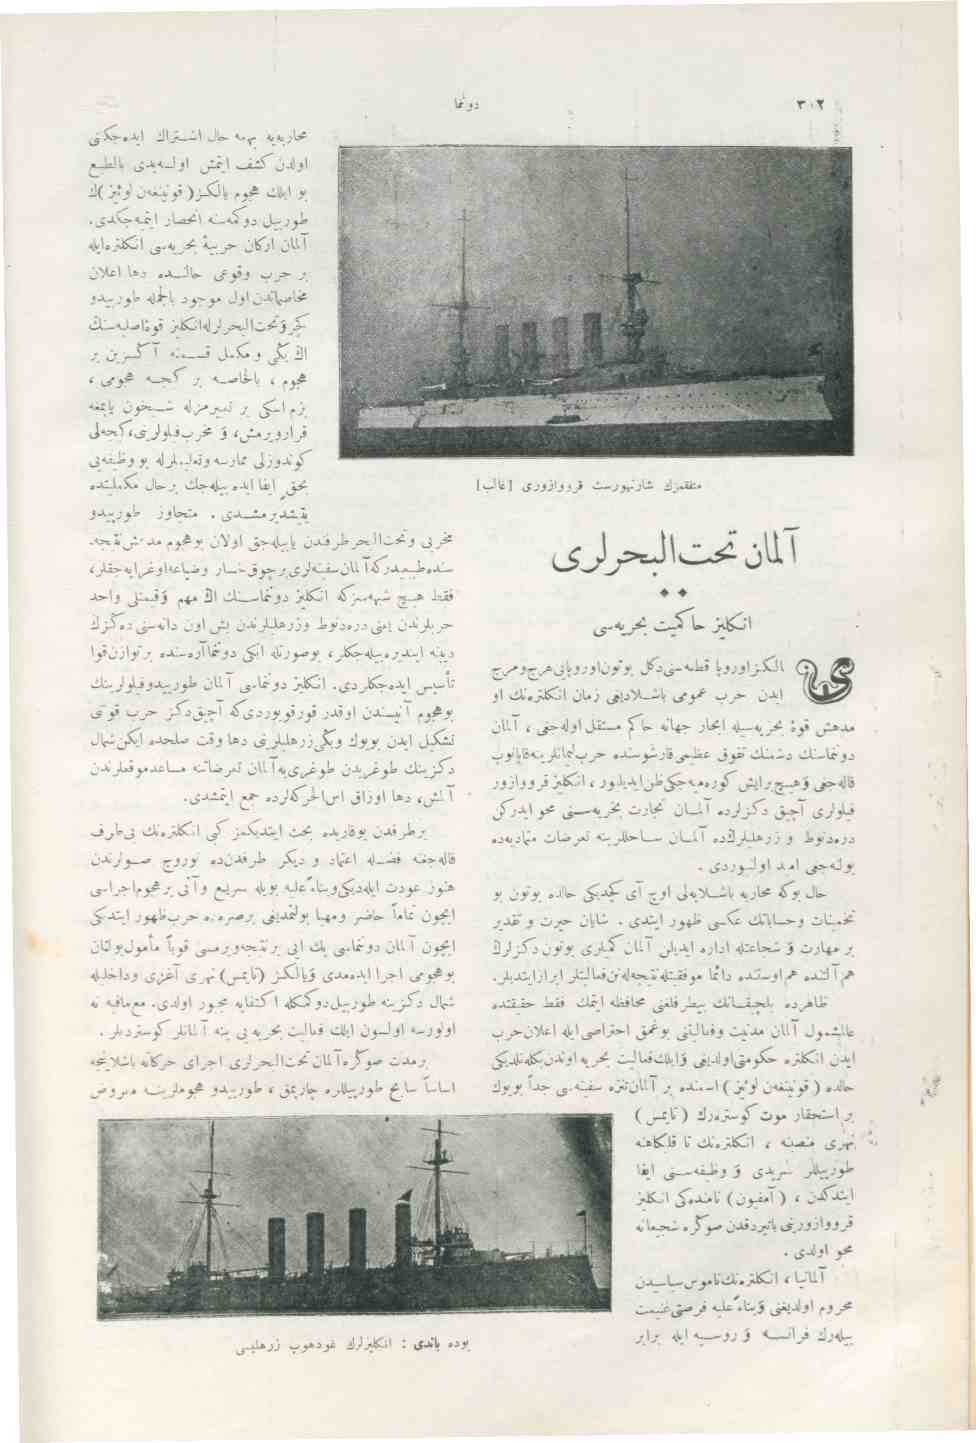 ٣٠٢
دوننما
متفقمزك شارنهورست قرووازورى [غالب]
آلمان تحت البحرلرى
انكليز حاكميت بحريه‌سى
يالكز اوروپا قطعه‌سنى دكل بوتون اوروپايى هرج و مرج
ايدن حرب عمومى باشلاديغى زمان انكلتره‌نك او
مدهش قوۀ بحريه‌سيله ابحار جهانه حاكم مستقل اوله‌جغى ، آلمان
دوننماسنك دشمنك تفوق عظيمى قارشوسنده حرب ليمانلرينه قاپانوب
قاله‌جغى و هيچ بر ايش كوره‌ميه‌جكى ظن ايديليور ، انكليز قرووازور
فيلولرى آچيق دكزلرده آلمان تجارت بحريه‌سنى محو ايدركن
دره‌دنوط و زرهليلرك‌ده آلمان ساحللرينه تعرضات متماديه‌ده
بوله‌جغى اميد اولنوردى .
حال بوكه محاربه باشلايه‌لى اوچ آى كچديكى حالده بوتون بو
تخمينات و حساباتك عكسى ظهور ايتدى . شايان حيرت و تقدير
بر مهارت و شجاعتله اداره ايديلن آلمان كميلرى بوتون دكزلرك
هم آلتنده هم اوستنده دائما موفقيتله نتيجه‌لنن فعاليتلر ابراز ايتديلر.
ظاهرده بلچيقانك بيطرفلغنى محافظه ايتمك فقط حقيقتده
عالمشمول آلمان مدنيت و فعاليتنى بوغمق احتراصى ايله اعلان حرب
ايدن انكلتره حكومتى اولديغى و ايلك فعاليت بحريه اوندن بكله‌نلديكى
حالده ( قونيغه‌ن لوئيز ) اسمنده بر آلمان تنزه سفينه‌سى جداً بويوك
بر استحقار موت كوستره‌رك ( تايمس )
نهرى منصبنه ، انكلتره‌نك تا قلبكاهنه
طورپيللر سريدى و وظيفه‌سنى ايفا
ايتدكدن ، ( آمفيون ) نامنده‌كى انكليز
قرووازورينى باتيردقدن صوكره شجيعانه
محو اولدى .
آلمانيا ، انكلتره‌نك ناموس سياسيدن
محروم اولديغنى و بناءً عليه فرصتى غنيمت
بيله‌رك فرانسه و روسيه ايله برابر
محاربه‌يه بهمه حال اشتراك ايده‌جكنى
اولدن كشف ايتمش اولسه‌يدى بالطبع
بو ايلك هجوم يالكز ( قونيغه‌ن لوئيز ) ك
طورپيل دوكمه‌سنه انحصار ايتميه‌جكدى.
آلمان اركان حربيۀ بحريه‌سى انكلتره ايله
بر حرب وقوعى حالنده دها اعلان
مخاصماتدن اول موجود بالجمله طورپيدو
كچر و تحت البحرلرله انكليز قوۀ اصليه‌سنك
اك يكى و مكمل قسمنه آكسزين بر
هجوم ، بالخاصه بر كيجه هجومى ،
بزم اسكى بر تعبيرمزله شبيخون ياپمغه
قرار ويرمش، و مخرب فيلولرينى، كيجه‌لى
كوندوزلى ممارسه و تعليملرله بو وظيفه‌يى
بحق ايفا ايده بيله‌جك بر حال مكمليتده
يتيشديرمشدى . متجاوز طورپيدو
مخربى و تحت البحر طرفندن ياپيله‌جق اولان بو هجوم مدهش نتيجه-
سنده طبيعيدركه آلمان سفينه‌لرى بر چوق خسار و ضياعه اوغرايه‌جقلر،
فقط هيچ شبهه‌سزكه انكليز دوننماسنك اك مهم و قيمتلى واحد
حربلرندن يعنى دره‌دنوط و زرهليلرندن بش اون دانه‌سنى ده دكزك
ديبنه اينديره‌بيله‌جكلر ، بوصورتله ايكى دوننما آره‌سنده بر توازن قوا
تأسيس ايده‌جكلردى. انكليز دوننماسى آلمان طورپيدو فيلولرينك
بو هجوم آنيسندن اوقدر قورقويوردى كه آچيق دكز حرب قوتنى
تشكيل ايدن بويوك و يكى زرهليلرينى دها وقت صلحده ايكن شمال
دكزينك طوغريدن طوغرى‌يه آلمان تعرضاتنه مساعد موقعلرندن
آلمش، دها اوزاق اس الحركه‌لرده جمع ايتمشدى.
بر طرفدن يوقاريده بحث ايتديكمز كبى انكلتره‌نك بى‌طرف
قاله‌جغنه فضله اعتماد و ديكر طرفدن‌ده نوروچ صولرندن
هنوز عودت ايله‌ديكى و بناءً عليه بويله سريع و آنى بر هجوم اجراسى
ايچون تماماً حاضر و مهيا بولنمديغى بر صره‌ده حرب ظهور ايتديكى
ايچون آلمان دوننماسى پك ايى بر نتيجه ويرمسى قوياً مأمول بولنان
بو هجومى اجرا ايده‌مدى و يالكز ( تايمس ) نهرى آغزى و داخليله
شمال دكزينه طورپيل دوكمكله اكتفايه مجبور اولدى. مع‌مافيه نه
اولورسه اولسون ايلك فعاليت بحريه‌يى ينه آلمانلر كوسترديلر .
بر مدت صوكره آلمان تحت البحرلرى اجراى حركاته باشلاينجه
اساساً سابح طورپيللره چارپمق ، طورپيدو هجوملرينه معروض
بوده باتدى : انكليزلرك غودهوپ زرهليسى